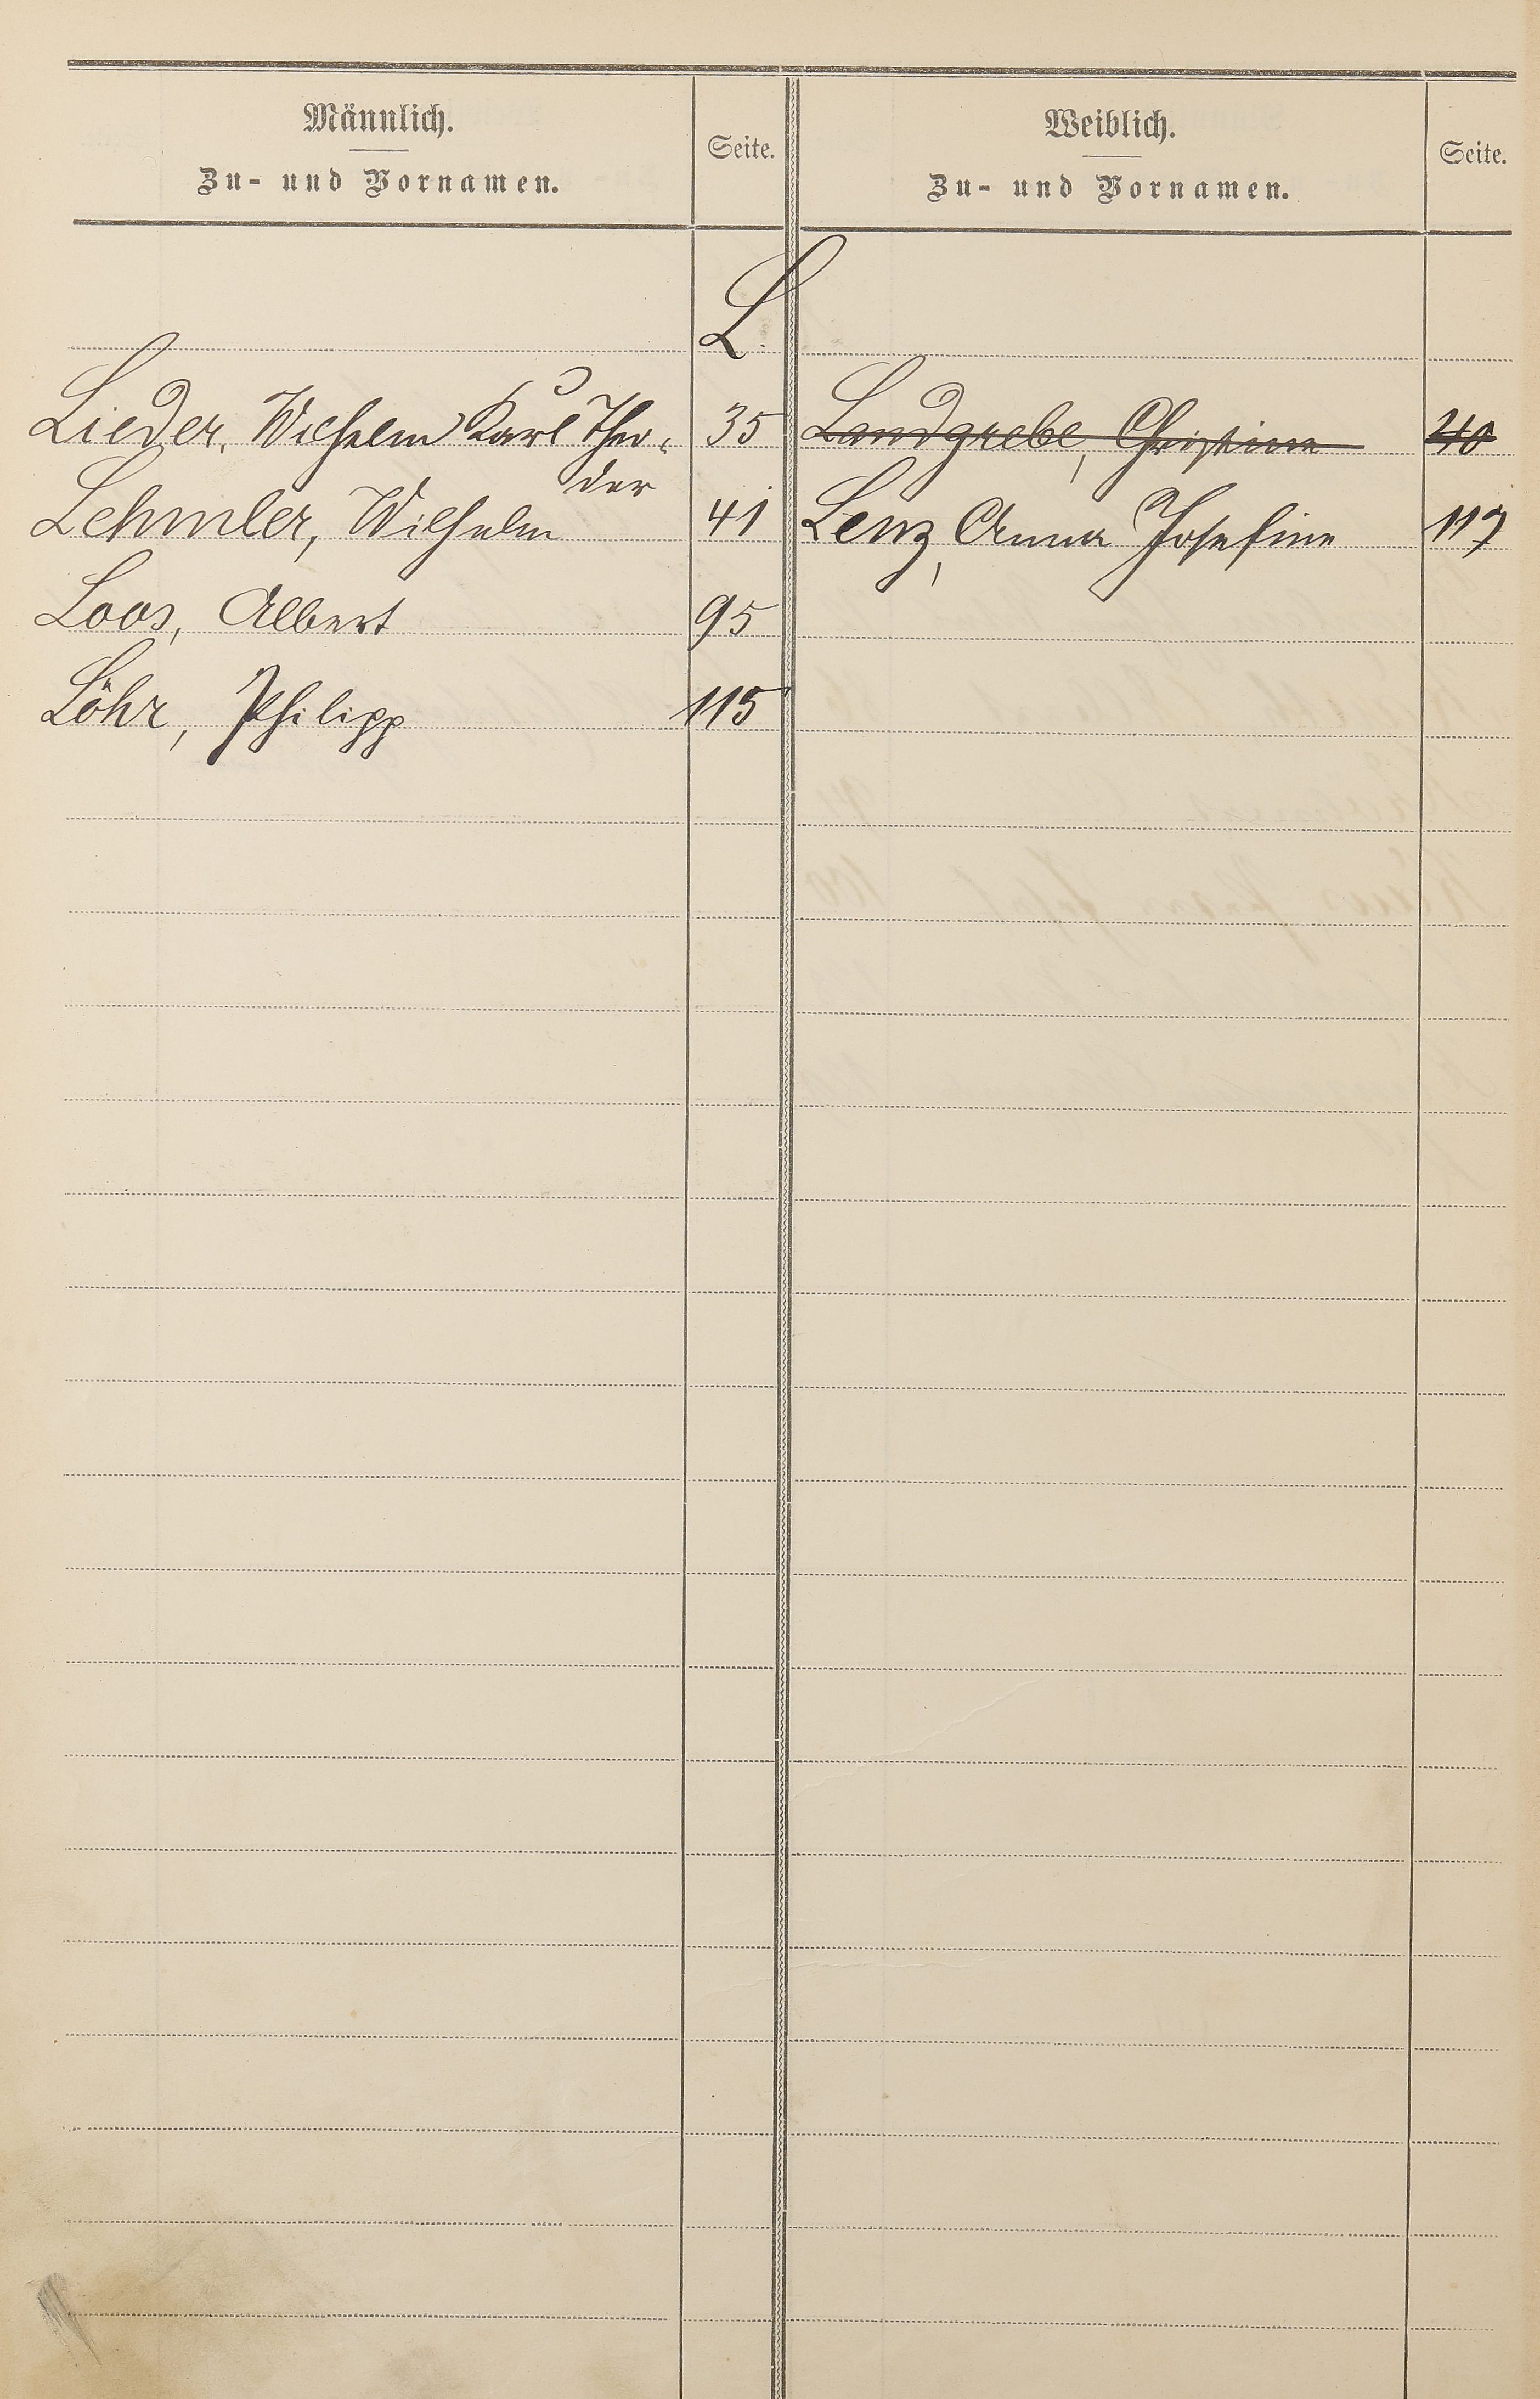 Männlich.
Zu- und Vornamen.
Seite.
Weiblich.
Zu- und Vornamen.
Seite.
L.
Lieder, Wilhelm Karl Theo- 35
dor
Landgrebe, Christine 40
Lehmler, Wilhelm 41
Lenz, Anna Josefine 117
Loos, Albert 95
Löhr, Philipp 115